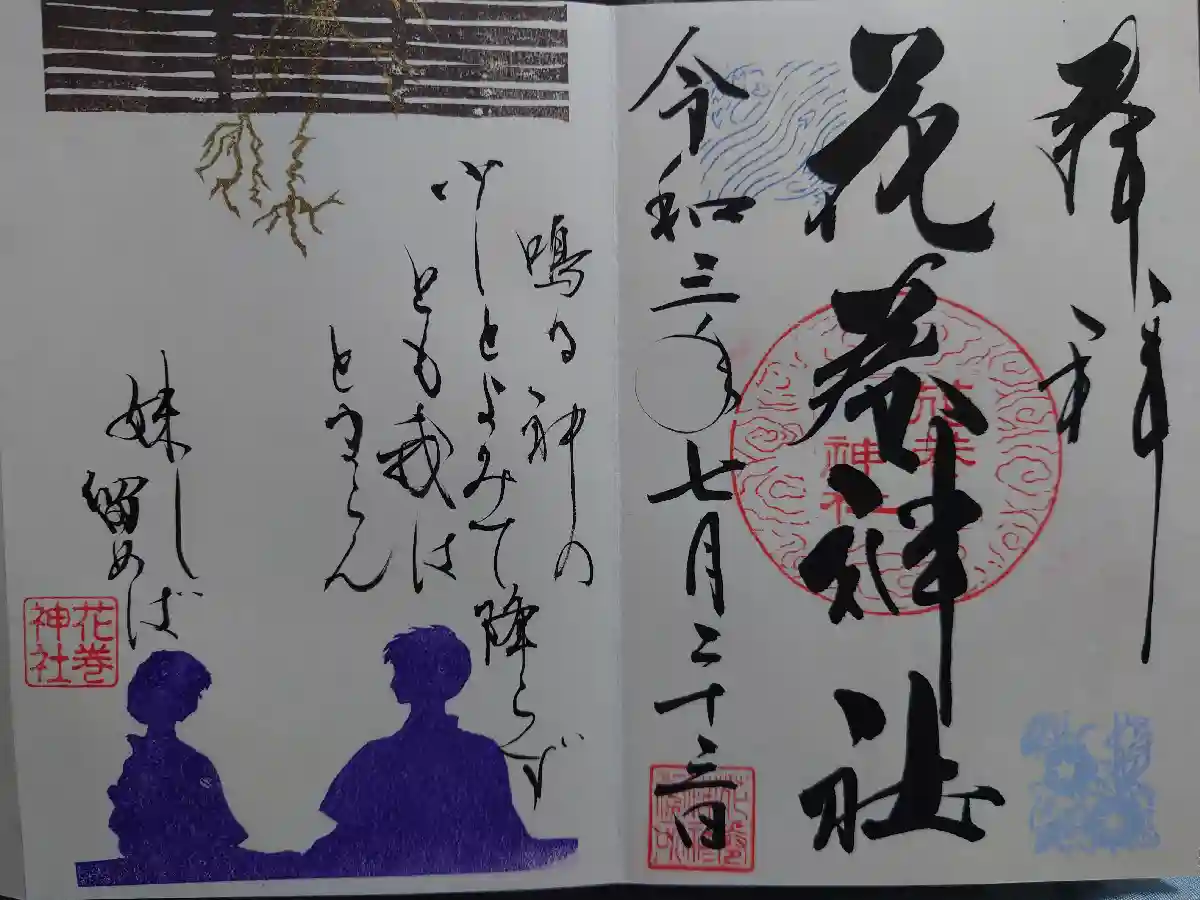 奉拝
花巻神社
花巻
神社
令和三年七月二十三日
鳴る神の
少しとよみて降らず
とも我は
とまらん
妹し
留めば
花巻
神社